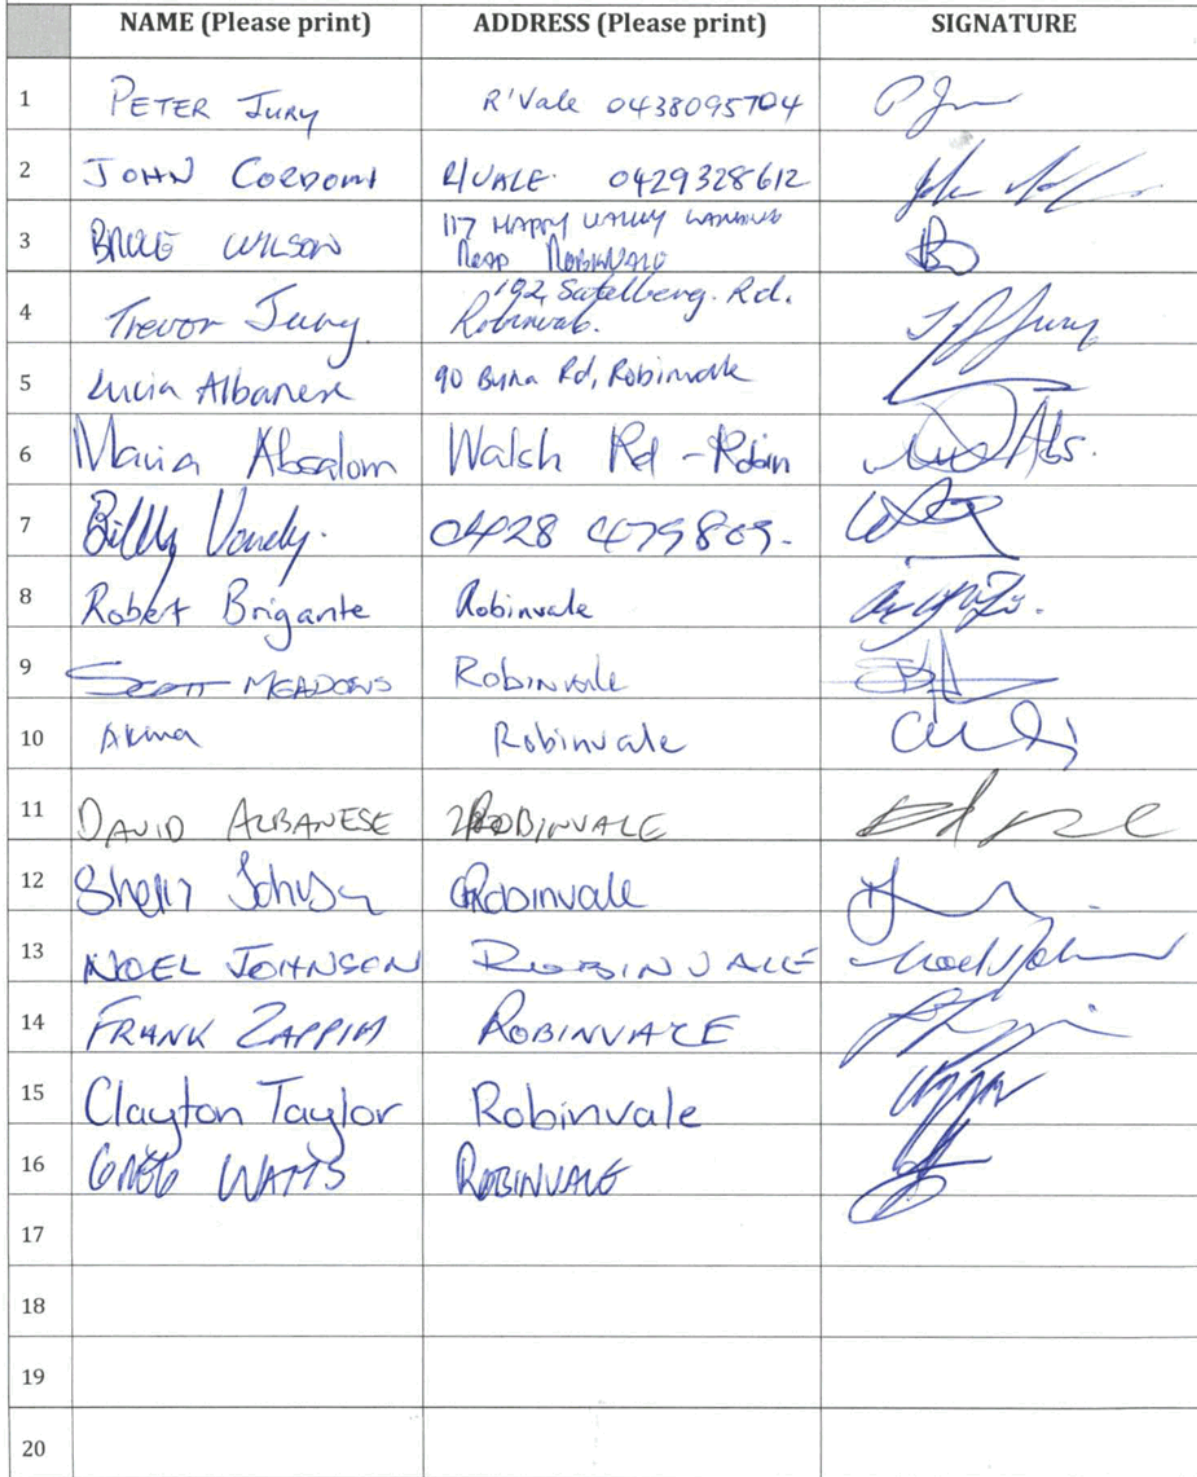 NAME (Please print) ADDRESS (Please print) SIGNATURE
1 PETER JURY R'Vale 0438095704 P Jury
2 JOHN R/VALE. 0429328612
3 BRUCE WILSON 117 HAPPY VALLEY LANDING
ROAD ROBINVALE
4 Trevor Jury. 192, Sattelberg. Rd.
Robinvale.
5 Lucia Albanese 90 Rd, Robinvale
6 Maria Absalom Walsh Rd - Robin
7 Billy Vandy. 0428 479809.
8 Robert Brigante Robinvale
9 SCOTT MEADOWS Robinvale
10 Robinvale
11 DAVID ALBANESE ROBINVALE
12 Robinvale
13 NOEL JOHNSON ROBINVALE
14 FRANK ZAPPIA ROBINVALE
15 Clayton Taylor Robinvale
16 GREG WATTS ROBINVALE
17
18
19
20